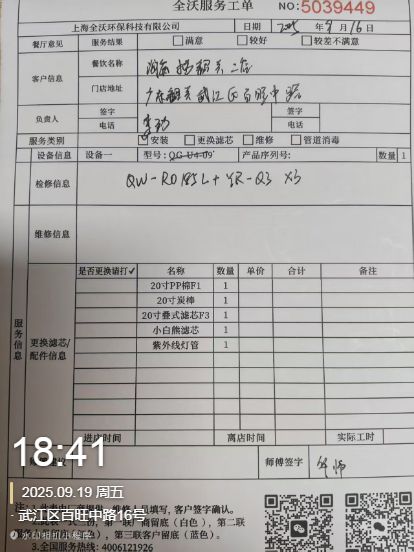 全沃服务工单 NO:5039449
上海全沃环保科技有限公司 日期 2025年9月16日
餐厅意见 服务结果 □满意 □较好 □较差不满意
客户信息 餐饮名称
门店地址
负责人 签字 签字
电话 电话
服务类别 □安装 □更换滤芯 □维修 □管道消毒
设备信息 设备一 型号:QG-U4-09 产品序列号: 数量 1
检修信息 QW-R0185L+YR-Q3 X3
维修信息
服务信息 更换滤芯/配件信息 是否更换请打✓ 名称 数量 单价 合计 备注
20寸PP棉F1 1
20寸炭棒 1
20寸叠式滤芯F3 1
小白熊滤芯 1
紫外线灯管 1
进店时间 离店时间 实际工时
师傅签字
18:41
2025.09.19 周五
武江区百旺中路16号
填写,客户签字确认。
第二联
第三联客户留底(蓝色)。
3.全国服务热线:4006121926